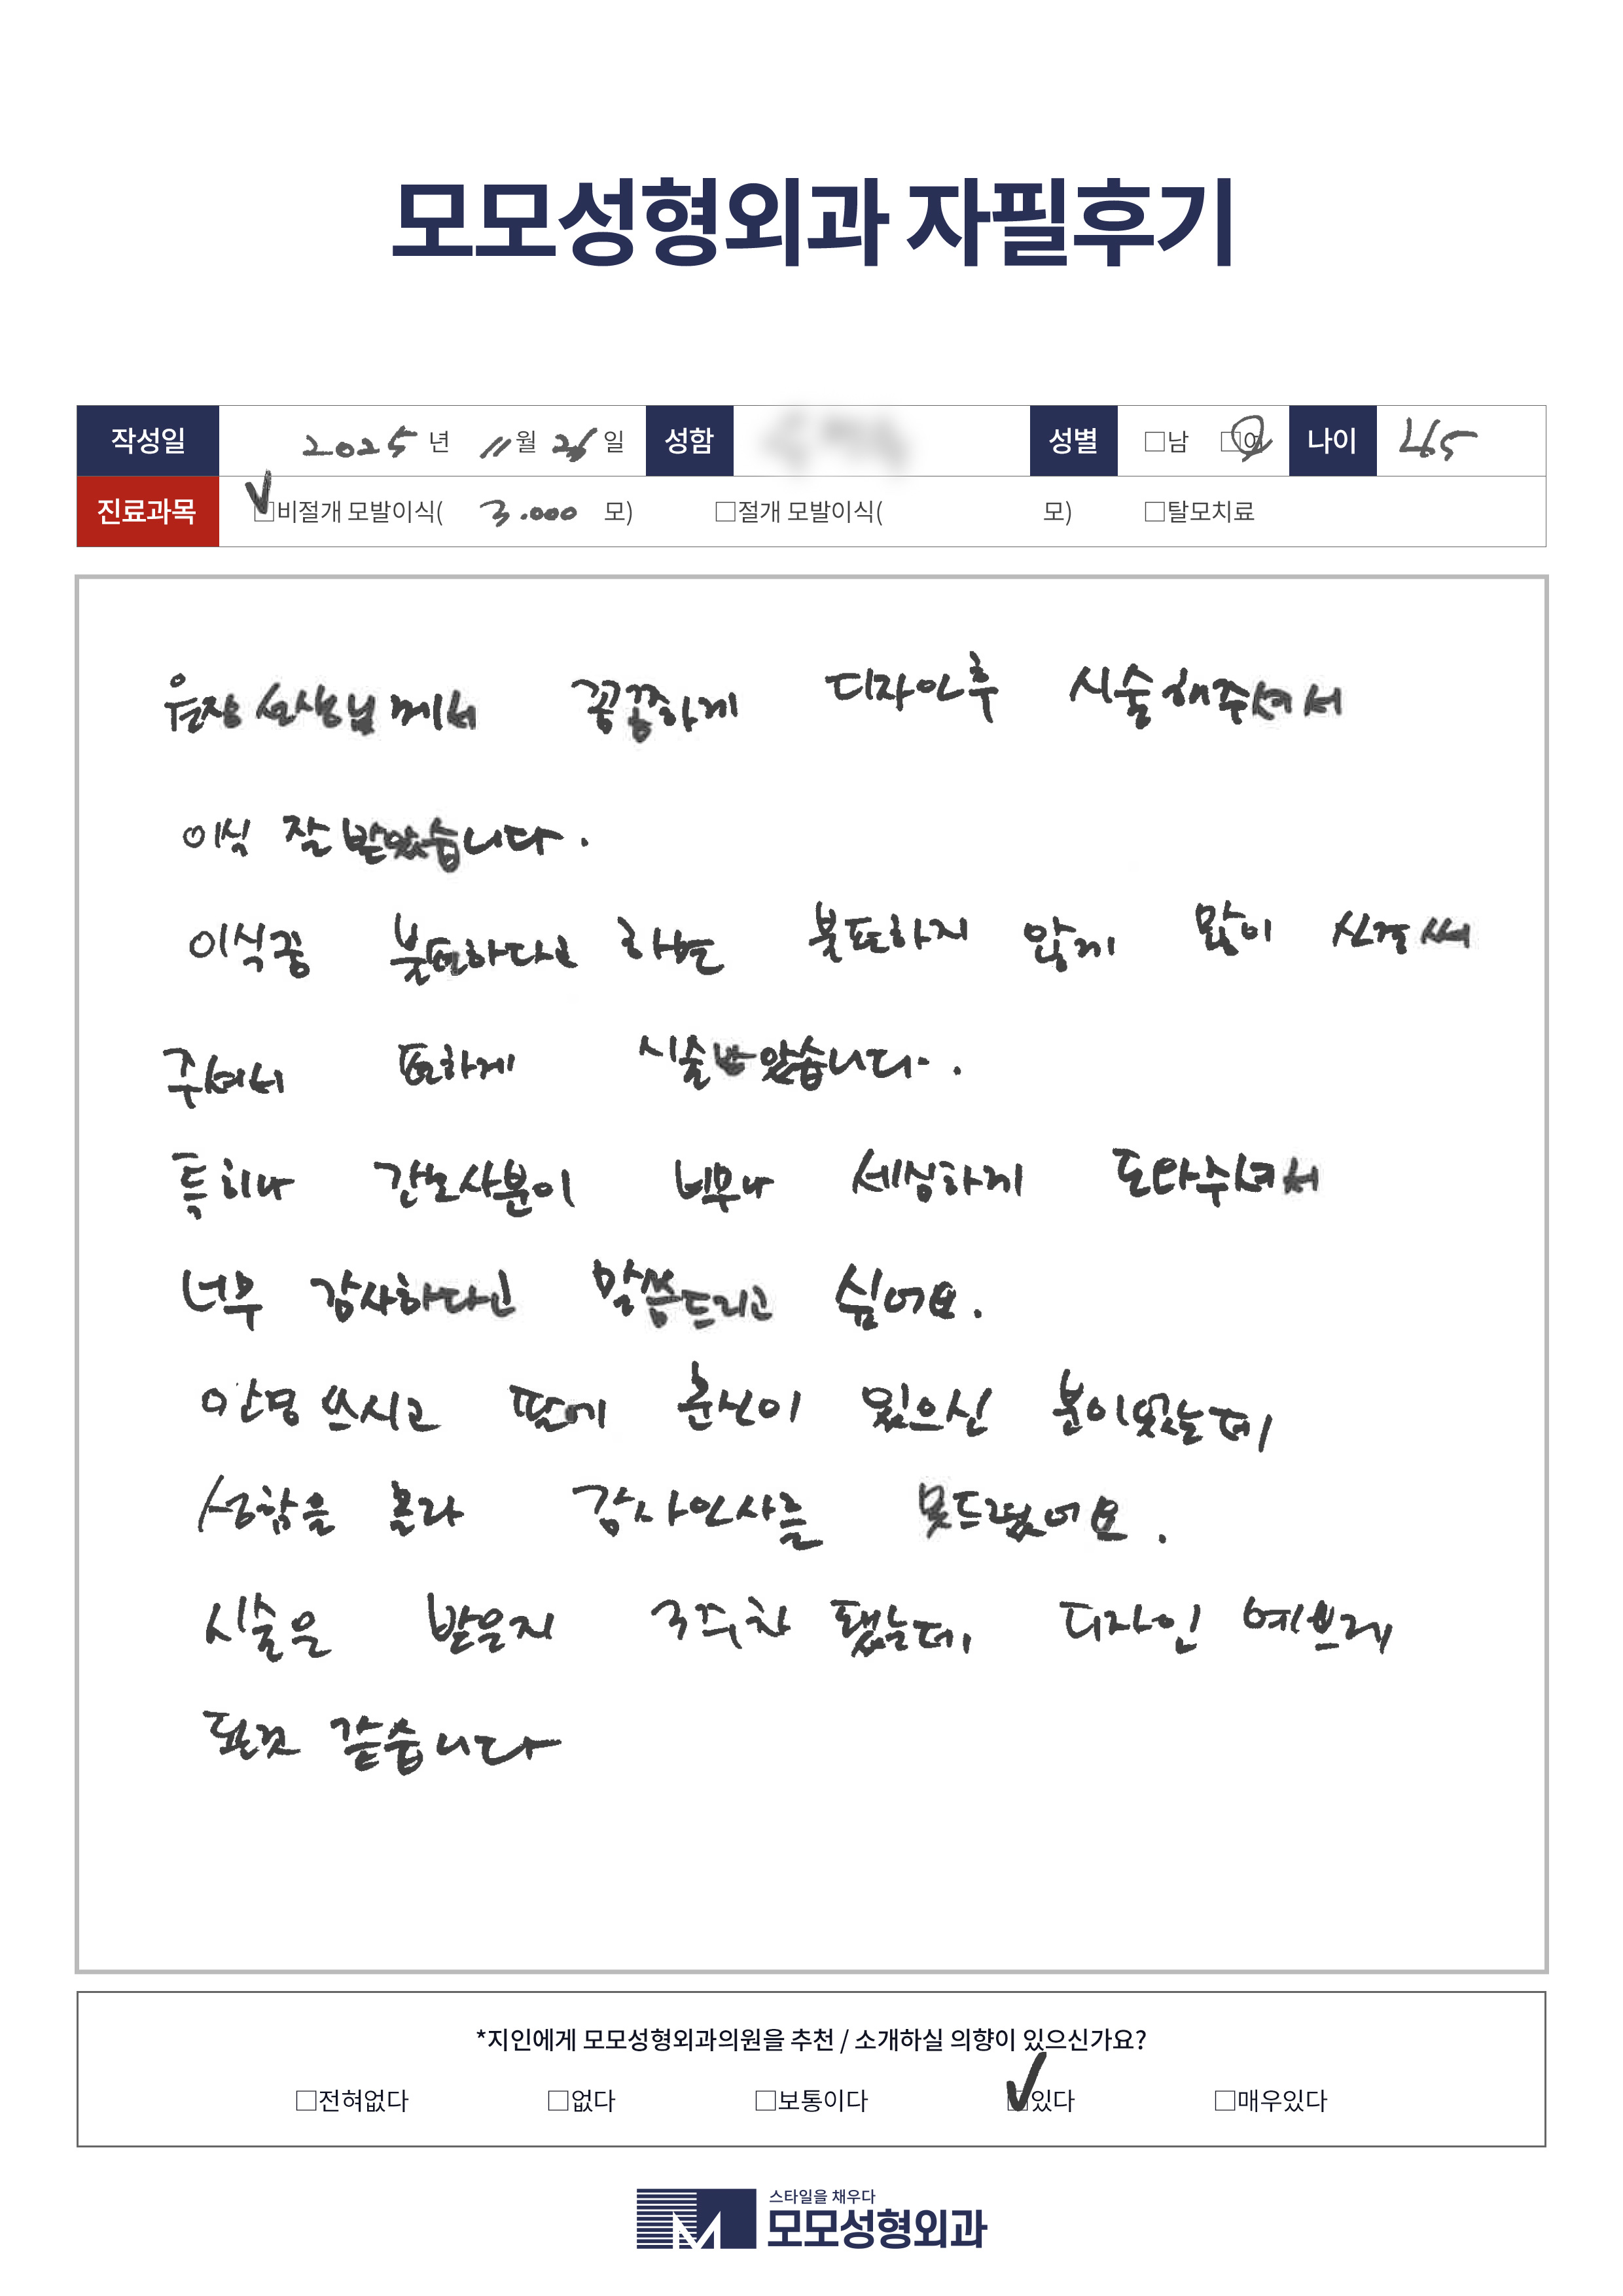 모모성형외과 자필후기
작성일 2025 년 11 월 26 일 성함 성별 □남 □여 나이 45
진료과목 □비절개 모발이식( 3.000 모) □절개 모발이식( 모) □탈모치료
원장선생님께서 꼼꼼하게 디자인후 시술해주셔서
이식 잘 받았습니다.
이식중 불편하다고 하면 불편하지 않게 많이 신경써
주셔서 편하게 시술받았습니다.
특히나 간호사분이 너무나 세심하게 도와주셔서
너무 감사하다고 말씀드리고 싶어요.
안경 쓰시고 문신이 있으신 분이였는데
성함을 몰라 감사인사를 못드렸어요.
시술은 받은지 3주차 됐는데, 디자인 예쁘게
된것 같습니다
*지인에게 모모성형외과의원을 추천 / 소개하실 의향이 있으신가요?
□전혀없다 □없다 □보통이다 □있다 □매우있다
스타일을 채우다
모모성형외과